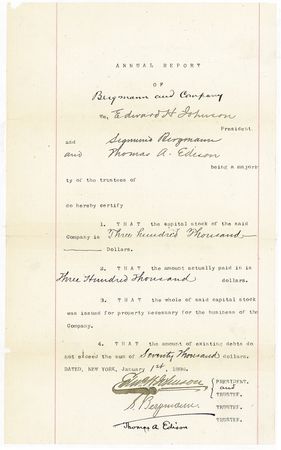 ANNUAL REPORT
OF
Bergmann and Company
We, Edward H Johnson
President.
and Sigmund Bergmann
and Thomas A. Edison
being a majori
ty of the trustees of
do hereby certify
1. THAT the capital stock of the said
Company is Three hundred Thousand
Dollars.
2. THAT the amount actually paid in is
Three Hundred Thousand dollars.
3. THAT the whole of said capital stock
was issued for property necessary for the business of the
Company.
4. THAT the amount of existing debts do
not exceed the sum of Seventy Thousand dollars.
DATED, NEW YORK, January 1st
Edw H Johnson PRESIDENT.
and
TRUSTEE.
S. Bergmann. TRUSTEE.
Thomas A Edison TRUSTEE.